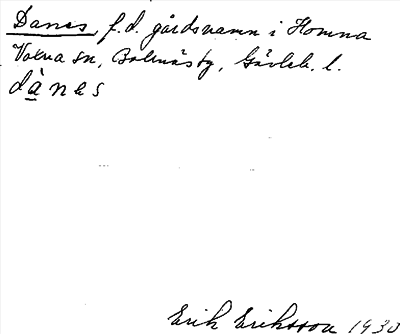 Danes, f.d. gårdsnamn i Homna
Voxna sn, Bollnäs tg, Gävleb. l.
dànes
Erik Eriksson 1930